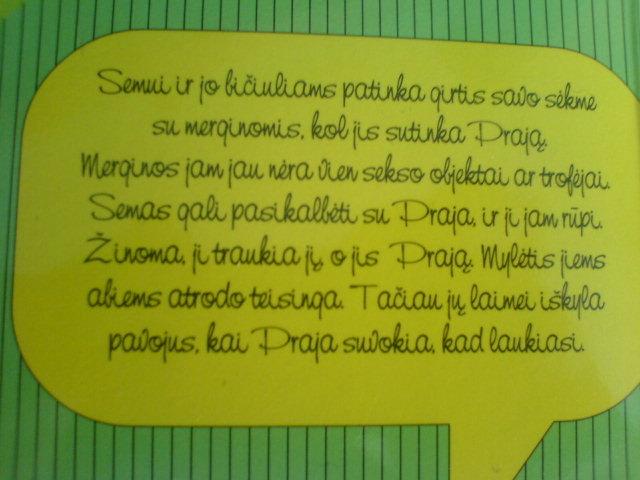 Semui ir jo bičiuliams patinka girtis savo sėkme
su merginomis, kol jis sutinka Prają.
Merginos jam jau nėra vien sekso objektai ar trofėjai.
Semas gali pasikalbėti su Praja, ir ji jam rūpi.
Žinoma, ji traukia jį, o jis Prają. Mylėtis jiems
abiems atrodo teisinga. Tačiau jų laimei iškyla
pavojus, kai Praja suvokia, kad laukiasi.